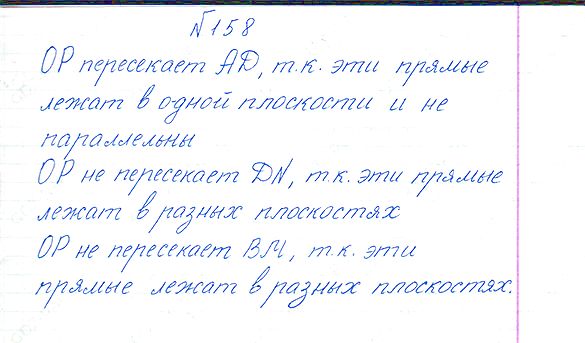 №158
OP пересекает AD, т.к. эти прямые
лежат в одной плоскости и не
параллельны
OP не пересекает DN, т.к. эти прямые
лежат в разных плоскостях
OP не пересекает BM, т.к. эти
прямые лежат в разных плоскостях.